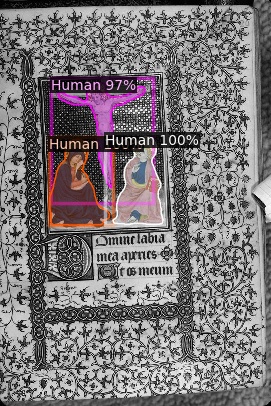 Human 97%
Human
Human 100%
Domine labia
mea aperies
Et os meum